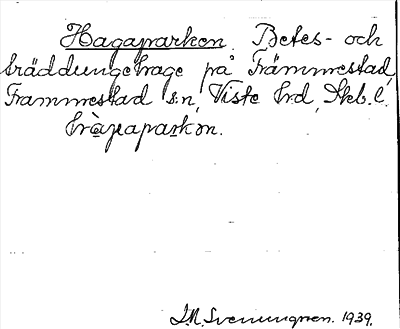 Hagaparken. Betes- och
träddungehage på Främmestad,
Främmestad s:n, Viste hrd, Skb. l.
hràɡapaʀkən.
J.M. Svenungsson. 1939.